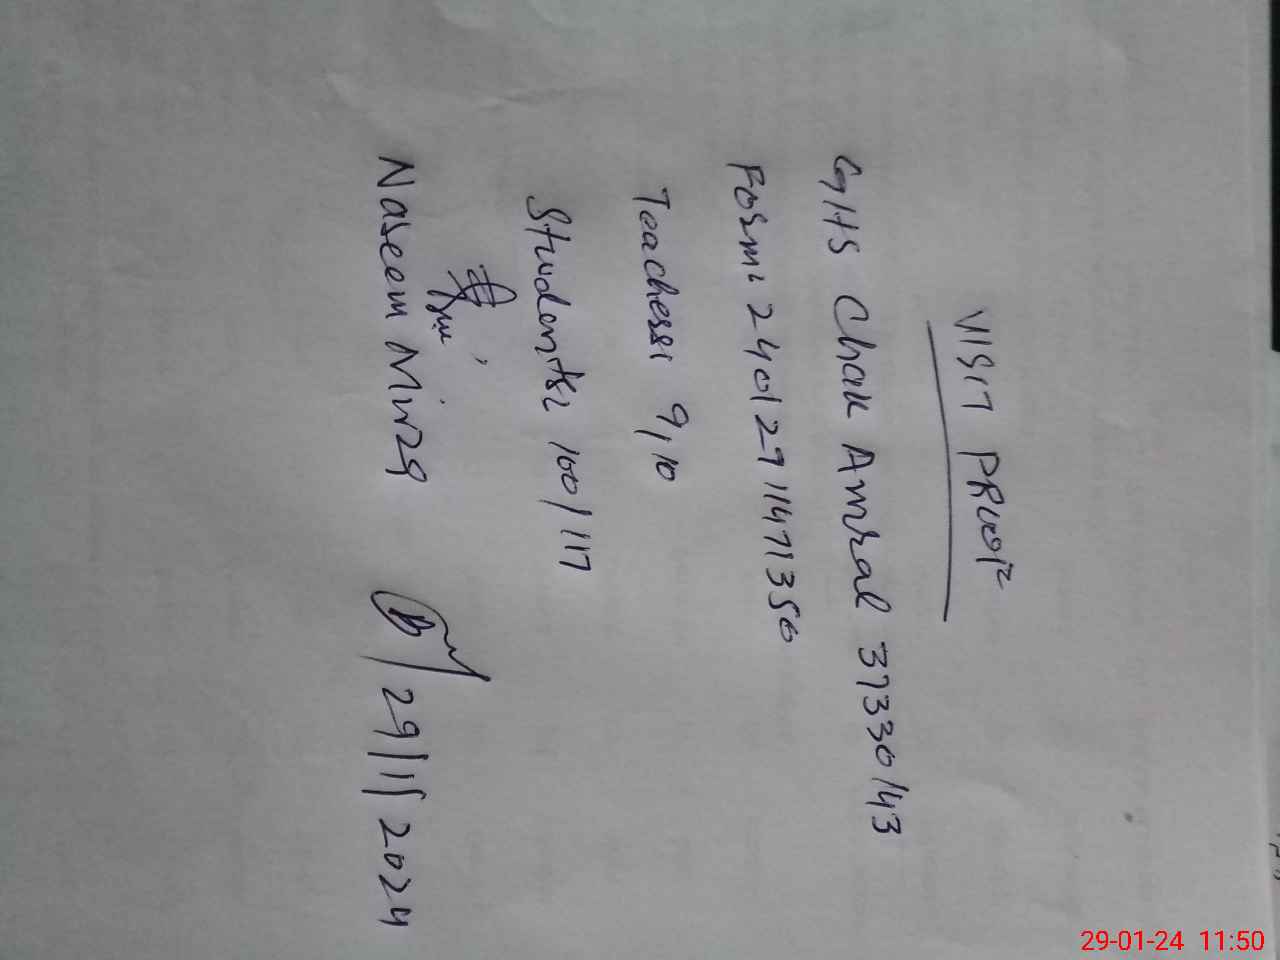 VISIT PROOF
GHS Chak Amral 37330143
Form: 24012911471350
Teachers: 9/10
Students: 100/117
Naseem Mirza
29/1/2024
29-01-24 11:50